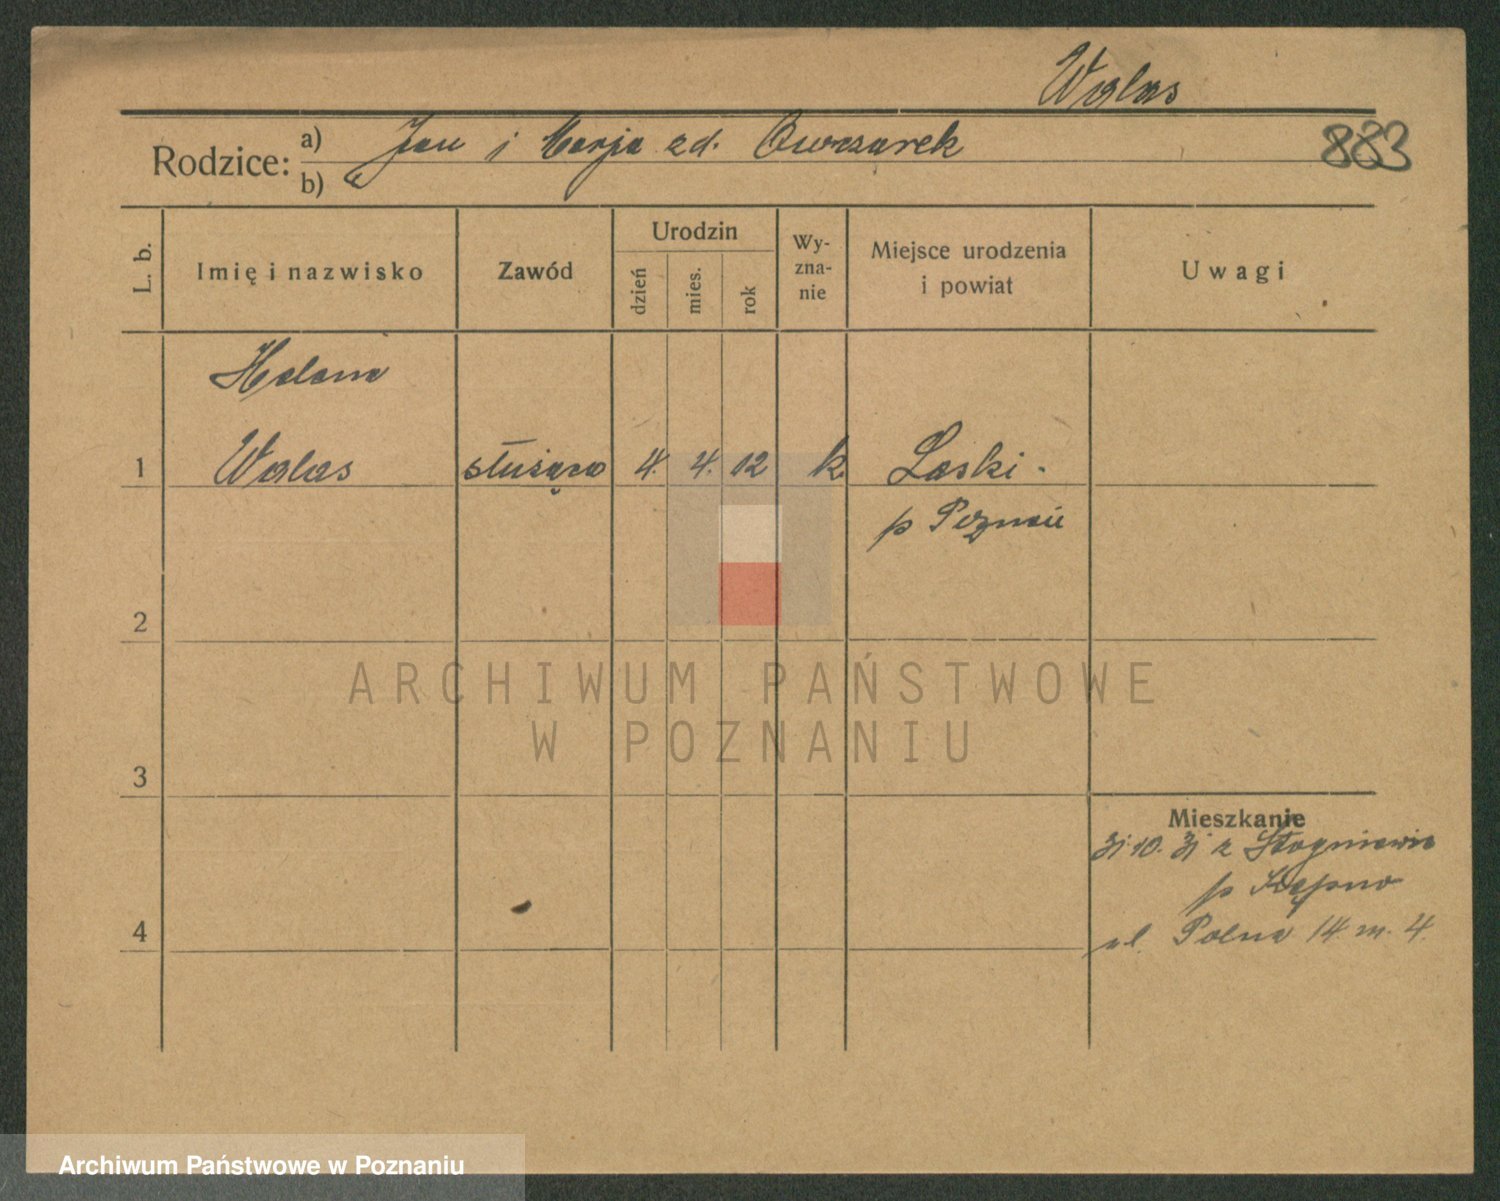 Walas
Rodzice: a) Jan i Marja zd. Owczarek
b)
883
L. b.
Imię i nazwisko
Zawód
Urodzin
dzień
mies.
rok
Wy-
zna-
nie
Miejsce urodzenia
i powiat
Uwagi
Helena
1 Walas służąca 4. 4. 12 k Laski.
p
2
3
4
Mieszkanie
31.10. 31 z
p Kępno
ul. Polna 14 m. 4.
ARCHIWUM PAŃSTWOWE
W POZNANIU
Archiwum Państwowe w Poznaniu